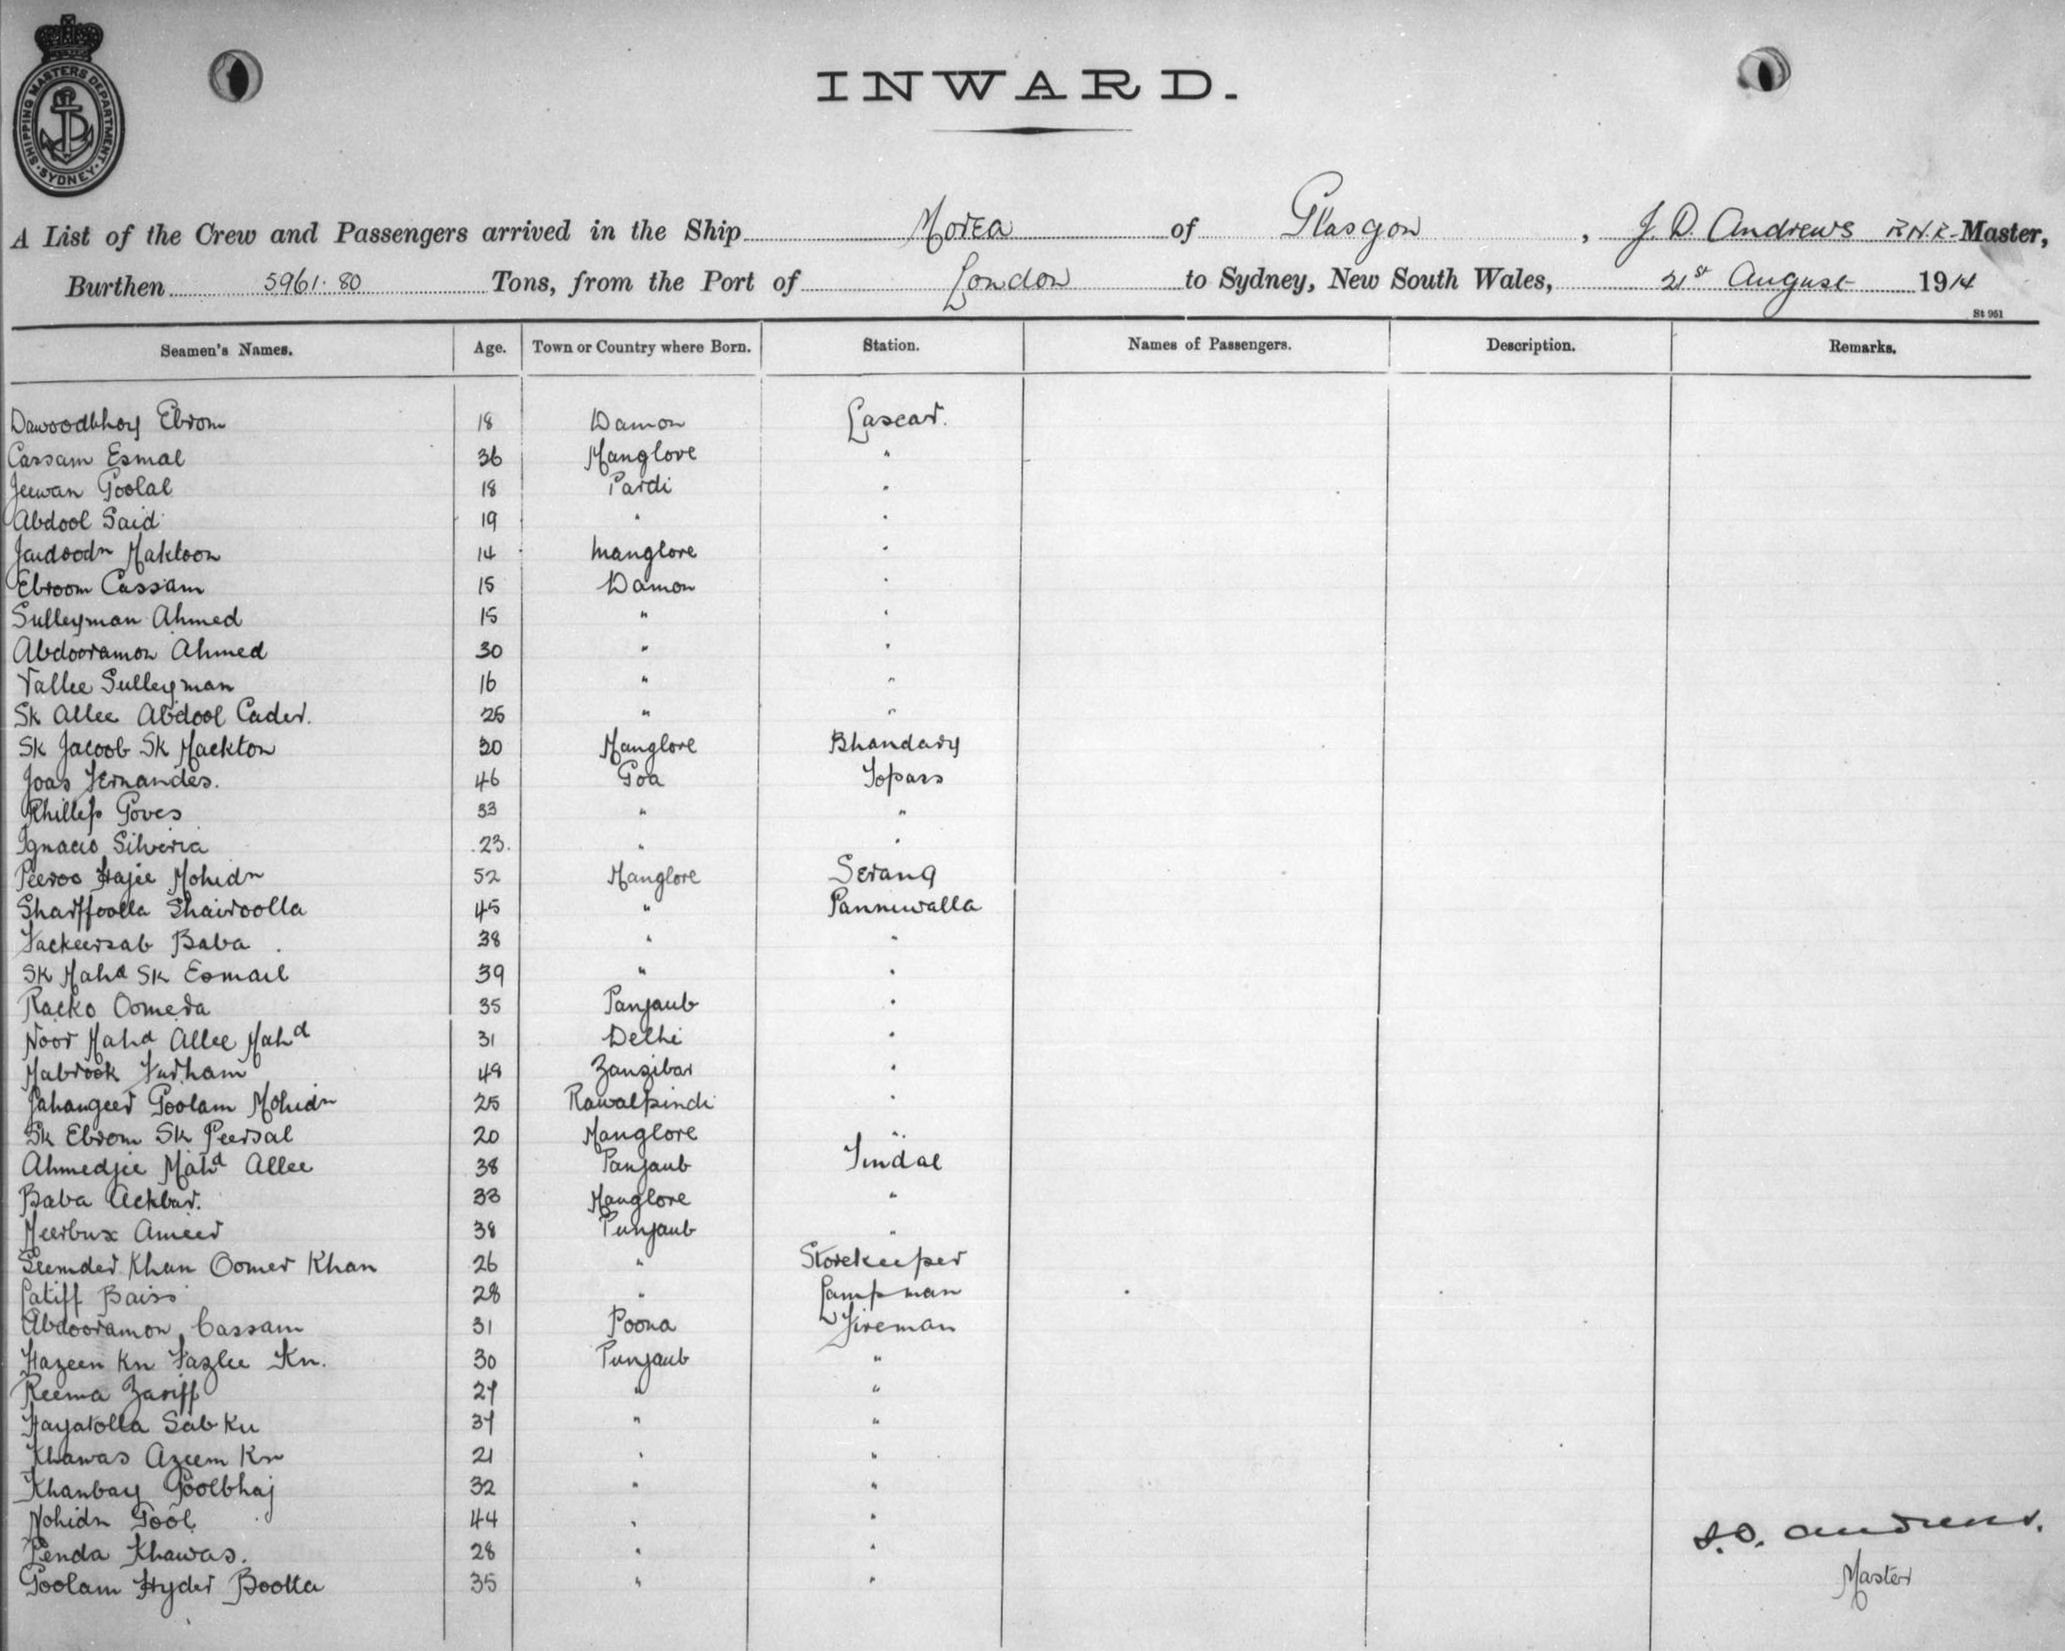 SHIPPING MASTERS DEPARTMENT
SYDNEY
INWARD.
A List of the Crew and Passengers arrived in the Ship Morea of Glasgow, J. D. Andrews R.N.R. Master,
Burthen 5961.80 Tons, from the Port of London to Sydney, New South Wales, 21st August 1914
St 951
Seamen's Names. Age. Town or Country where Born. Station. Names of Passengers. Description. Remarks.
Dawoodbhoy Ebrom 18 Damon Lascar.
Cassam Esmal 36 Manglore "
Jeewan Goolal 18 Pardi "
Abdool Said 19 " "
Jaudoodn Makloon 14 Manglore "
Ebroom Cassam 15 Damon "
Sulleyman Ahmed 15 " "
Abdooramon Ahmed 30 " "
Vallee Sulleyman 16 " "
Sk Allee Abdool Cader. 25 " "
Sk Jacoob Sk Mackton 30 Manglore Bhandary
Joas Fernandes. 46 Goa Topass
Phillep Goves 33 " "
Ignacio Silveria 23. " "
Peeroo Hajee Mohidn 52 Manglore Serang
Sharffoolla Shairoolla 45 " Panniwalla
Fackeersab Baba 38 " "
Sk Mahd Sk Esmail 39 " "
Racko Oomeda 35 Panjaub "
Noor Mahd Allee Mahd 31 Delhi "
Mabrook Furham 48 Zanzibar "
Jahangeer Goolam Mohidn 25 Rawalpindi "
Sk Ebrom Sk Peersal 20 Manglore "
Ahmedjee Mahd Allee 38 Panjaub Tindal
Baba Ackbar. 33 Manglore "
Meerbux Ameer 38 Punjaub "
Seemder Khan Oomer Khan 26 " Storekeeper
Latiff Baiss 28 " Lampman
Abdooramon Cassam 31 Poona Fireman
Hazeen Kn Fazlee Kn. 30 Punjaub "
Reema Zariff 27 " "
Hayatolla Sab Kn 37 " "
Khawas Azeem Kn 21 " "
Khanbay Goolbhaj 32 " "
Mohidn Gool 44 " "
Penda Khawas. 28 " "
Goolam Hyder Boolla 35 " "
J. D. Andrews.
Master